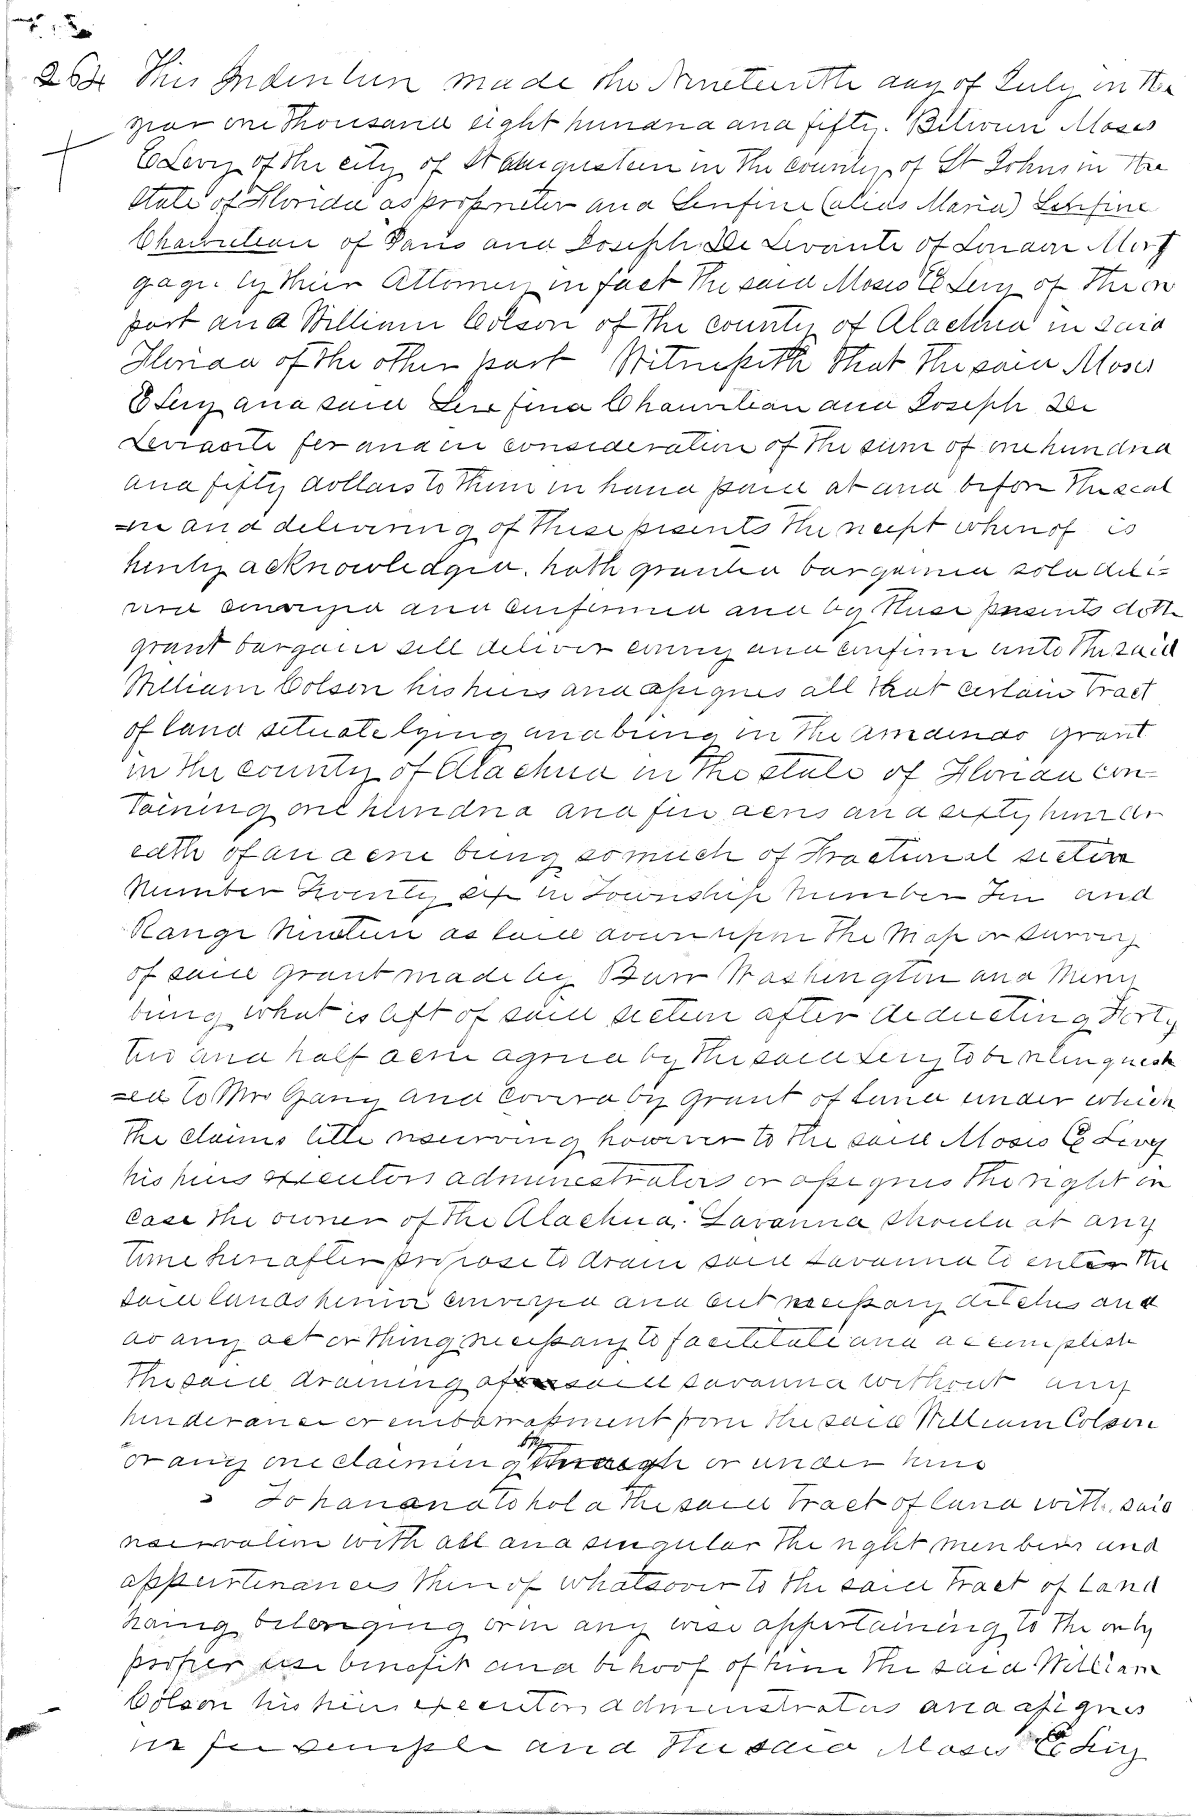 264 This Indenture made the Nineteenth day of July in the
year one thousand eight hundred and fifty. Between Moses
E Levy of the city of St Augusteen in the county of St Johns in the
state of Florida as proprietor and Serfine (alias Maria) Serfine
Chauvitean of Paris and Joseph De Levante of London Mort
gage. by their Attorney in fact the said Moses E Levy of the one
part and William Colson of the county of Alachua in said
Florida of the other part Witnesseth that the said Moses
E Levy and said Serefina Chauvitean and Joseph De
Leviante for and in consideration of the sum of one hundred
and fifty dollars to them in hand paid at and before the seal
=ing and delivering of these presents the receipt whereof is
hereby acknowledged. hath granted bargained sold deli=
vered conveyed and confirmed and by these presents doth
grant bargain sell deliver convey and confirm unto the said
William Colson his heirs and assignes all that certain tract
of land situate lying and being in the Arredondo grant
in the county of Alachua in the state of Florida con=
taining one hundred and five acres and sixty hundr
edth of an acre being so much of Fractional section
Number Twenty six in Township Number Ten and
Range Nineteen as laid down upon the Map or survey
of said grant made by Burr Washington and Merry
being what is left of said section after deducting Forty
two and half acre agreed by the said Levy to be relinquesh
=ed to Mr Gary and covered by grant of land under which
the claims title reserving however to the said Moses E Levy
his heirs executors adminestrators or assignes the right in
case the owner of the Alachua Savanna should at any
time hereafter propose to drain said savanna to enter the
said lands herein conveyed and cut necessary ditches and
do any act or thing necessary to facilitate and accomplish
the said draining of said savanna without any
hinderance or embarrassment from the said William Colson
or any one claiming by through or under him
To have and to hold the said tract of land with said
reservation with all and singular the right members and
appurtenances thereof whatsover to the said tract of Land
being belonging or in any wise appertaining to the only
proper use benefit and behoof of him the said William
Colson his heirs executors administrators and assignes
in fee simple and the said Moses E Levy